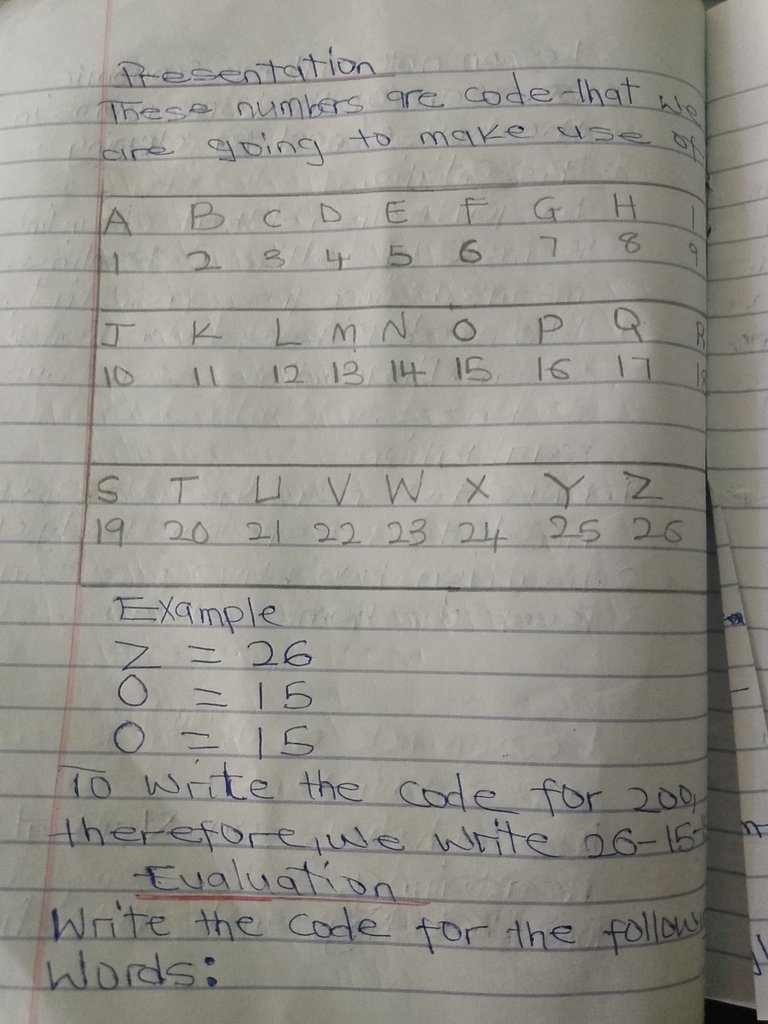 Presentation
These numbers are code that we
are going to make use of
A B C D E F G H I
1 2 3 4 5 6 7 8 9
J K L M N O P Q R
10 11 12 13 14 15 16 17 18
S T U V W X Y Z
19 20 21 22 23 24 25 26
Example
Z = 26
O = 15
O = 15
To write the code for zoo,
therefore, we write 26-15-
Evaluation
Write the code for the follow
Words: